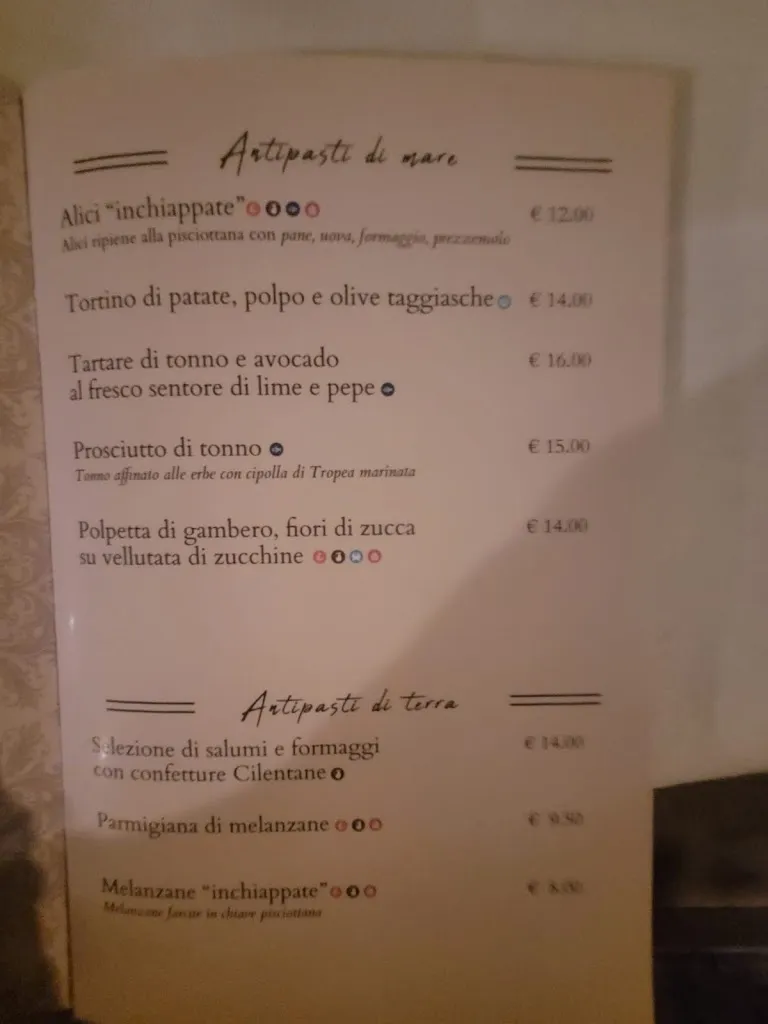 Antipasti di mare
Alici "inchiappate" € 12.00
Alici ripiene alla pisciottana con pane, uova, formaggio, prezzemolo
Tortino di patate, polpo e olive taggiasche € 14.00
Tartare di tonno e avocado € 16.00
al fresco sentore di lime e pepe
Prosciutto di tonno € 15.00
Tonno affinato alle erbe con cipolla di Tropea marinata
Polpetta di gambero, fiori di zucca € 14.00
su vellutata di zucchine
Antipasti di terra
Selezione di salumi e formaggi € 14.00
con confetture Cilentane
Parmigiana di melanzane € 9.50
Melanzane "inchiappate" € 8.00
Melanzane farcite in chiave pisciottana